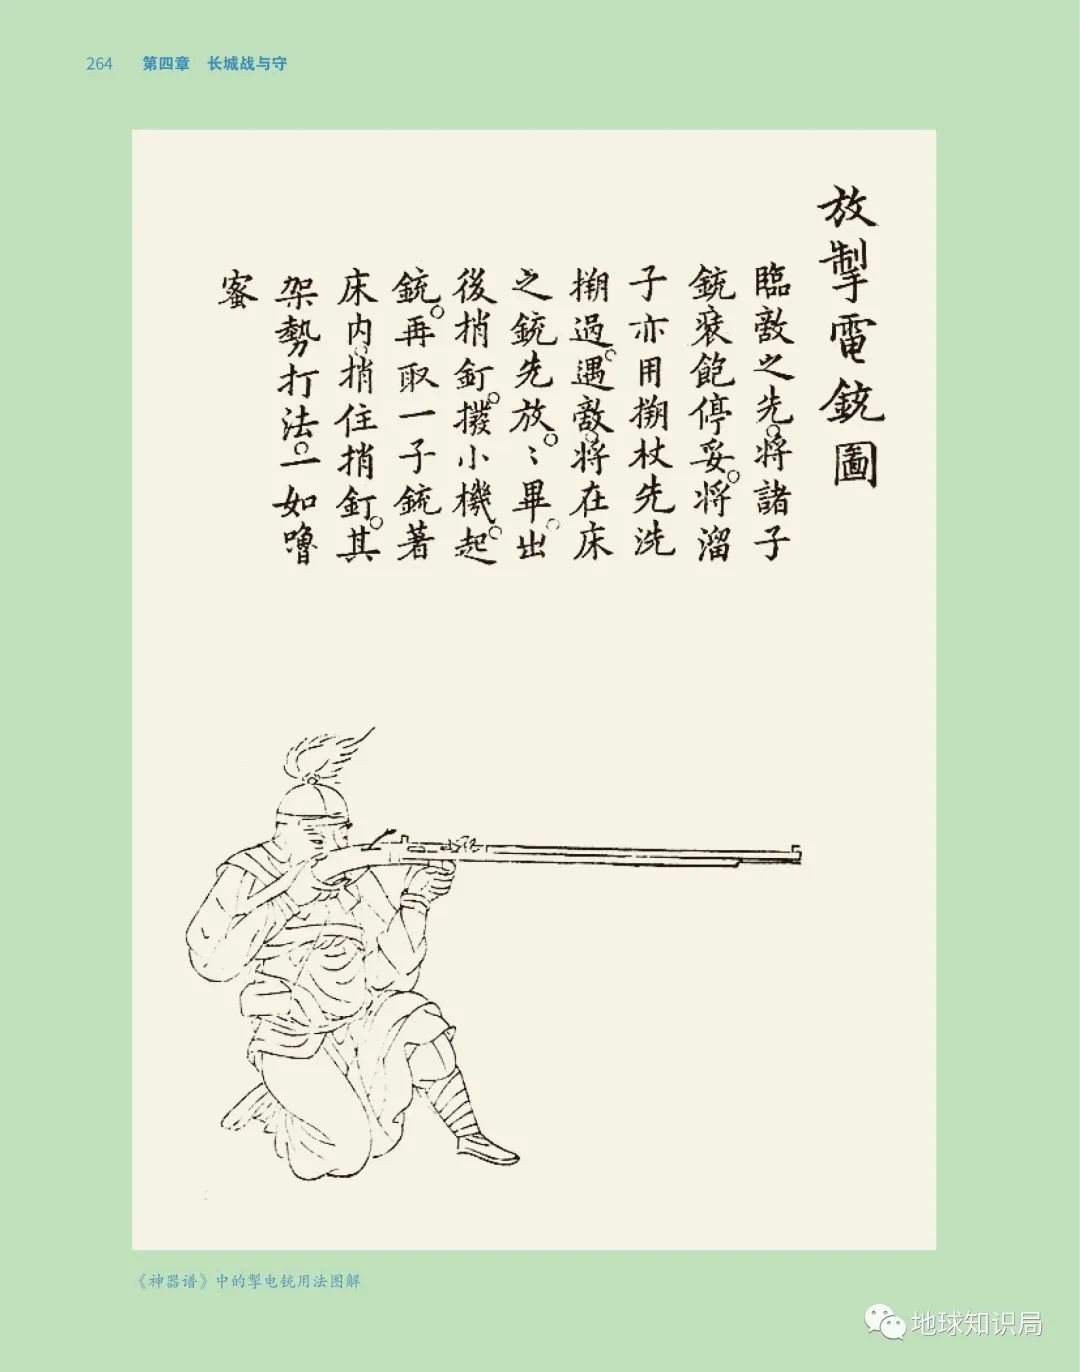 264 第四章 长城战与守
放掣電銃圖
臨敵之先。將諸子
銃裝飽停妥。將溜
子亦用搠杖先洗
搠過。遇敵。將在床
之銃先放。〻畢。出
後捎釘。撥小機。起
銃。再取一子銃著
床内。捎住捎釘。其
架勢打法。一如嚕
蜜
《神器谱》中的掣电铳用法图解
地球知识局